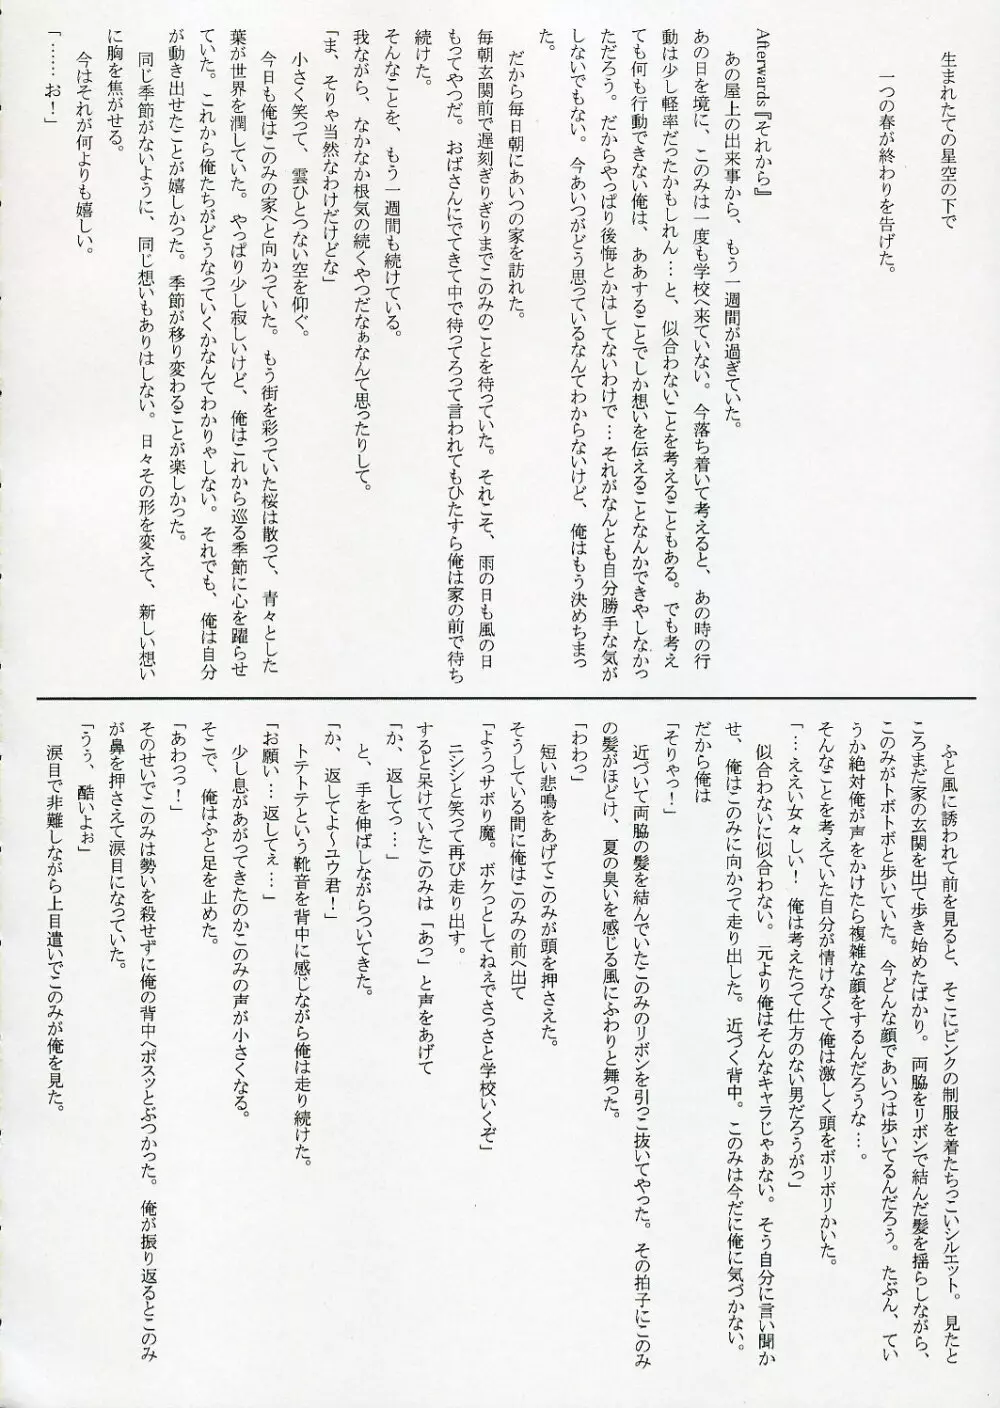 生まれたての星空の下で
一つの春が終わりを告げた。
Afterwards『それから』
あの屋上の出来事から、もう一週間が過ぎていた。
あの日を境に、このみは一度も学校へ来ていない。今落ち着いて考えると、あの時の行
動は少し軽率だったかもしれん…と、似合わないことを考えることもある。でも考え
ても何も行動できない俺は、ああすることでしか想いを伝えることなんかできやしなかっ
ただろう。だからやっぱり後悔とかはしてないわけで…それがなんとも自分勝手な気が
しないでもない。今あいつがどう思っているなんてわからないけど、俺はもう決めちまっ
た。
だから毎日朝にあいつの家を訪れた。
毎朝玄関前で遅刻ぎりぎりまでこのみのことを待っていた。それこそ、雨の日も風の日
もってやつだ。おばさんにでてきて中で待ってろって言われてもひたすら俺は家の前で待ち
続けた。
そんなことを、もう一週間も続けている。
我ながら、なかなか根気の続くやつだなぁなんて思ったりして。
「ま、そりゃ当然なわけだけどな」
小さく笑って、雲ひとつない空を仰ぐ。
今日も俺はこのみの家へと向かっていた。もう街を彩っていた桜は散って、青々とした
葉が世界を潤していた。やっぱり少し寂しいけど、俺はこれから巡る季節に心を躍らせ
ていた。これから俺たちがどうなっていくかなんてわかりゃしない。それでも、俺は自分
が動き出せたことが嬉しかった。季節が移り変わることが楽しかった。
同じ季節がないように、同じ想いもありはしない。日々その形を変えて、新しい想い
に胸を焦がせる。
今はそれが何よりも嬉しい。
「……お！」
ふと風に誘われて前を見ると、そこにピンクの制服を着たちっこいシルエット。見たと
ころまだ家の玄関を出て歩き始めたばかり。両脇をリボンで結んだ髪を揺らしながら、
このみがトボトボと歩いていた。今どんな顔であいつは歩いてるんだろう。たぶん、てい
うか絶対俺が声をかけたら複雑な顔をするんだろうな…。
そんなことを考えていた自分が情けなくて俺は激しく頭をボリボリかいた。
「…ええい女々しい！　俺は考えたって仕方のない男だろうがっ」
似合わないに似合わない。元より俺はそんなキャラじゃぁない。そう自分に言い聞か
せ、俺はこのみに向かって走り出した。近づく背中。このみは今だに俺に気づかない。
だから俺は
「そりゃっ！」
近づいて両脇の髪を結んでいたこのみのリボンを引っこ抜いてやった。その拍子にこのみ
の髪がほどけ、夏の臭いを感じる風にふわりと舞った。
「わわっ」
短い悲鳴をあげてこのみが頭を押さえた。
そうしている間に俺はこのみの前へ出て
「ようっサボり魔。ボケっとしてねえでさっさと学校いくぞ」
ニシシと笑って再び走り出す。
すると呆けていたこのみは「あっ」と声をあげて
「か、返してっ…」
と、手を伸ばしながらついてきた。
「か、返してよ～ユウ君！」
トテトテという靴音を背中に感じながら俺は走り続けた。
「お願い…返してぇ…」
少し息があがってきたのかこのみの声が小さくなる。
そこで、俺はふと足を止めた。
「あわっっ！」
そのせいでこのみは勢いを殺せずに俺の背中へポスッとぶつかった。俺が振り返るとこのみ
が鼻を押さえて涙目になっていた。
「うぅ、酷いよぉ」
涙目で非難しながら上目遣いでこのみが俺を見た。